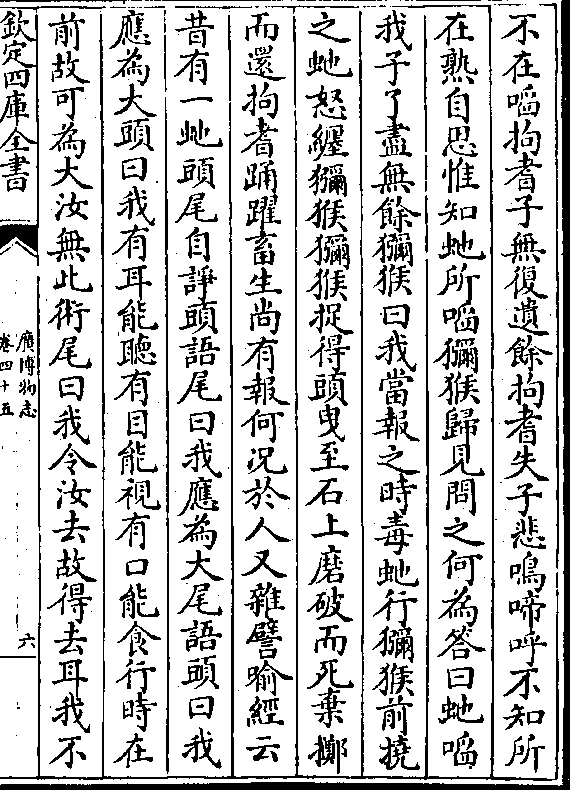 不在嗢拘耆子無復遺餘拘耆失子悲鳴啼呼不知所
在熟自思惟知虵所嗢獼猴歸見問之何為答曰虵嗢
我子了盡無餘獼猴曰我當報之時毒虵行獼猴前撓
之虵怒纏獼猴獼猴捉得頭曳至石上磨破而死棄擲
而還拘耆踊躍畜生尚有報何況於人又雜譬喻經云
昔有一虵頭尾自諍頭語尾曰我應為大尾語頭曰我
應為大頭曰我有耳能聽有目能視有口能食行時在
前故可為大汝無此術尾曰我令汝去故得去耳我不
欽定四庫全書
廣博物志
卷四十五
六